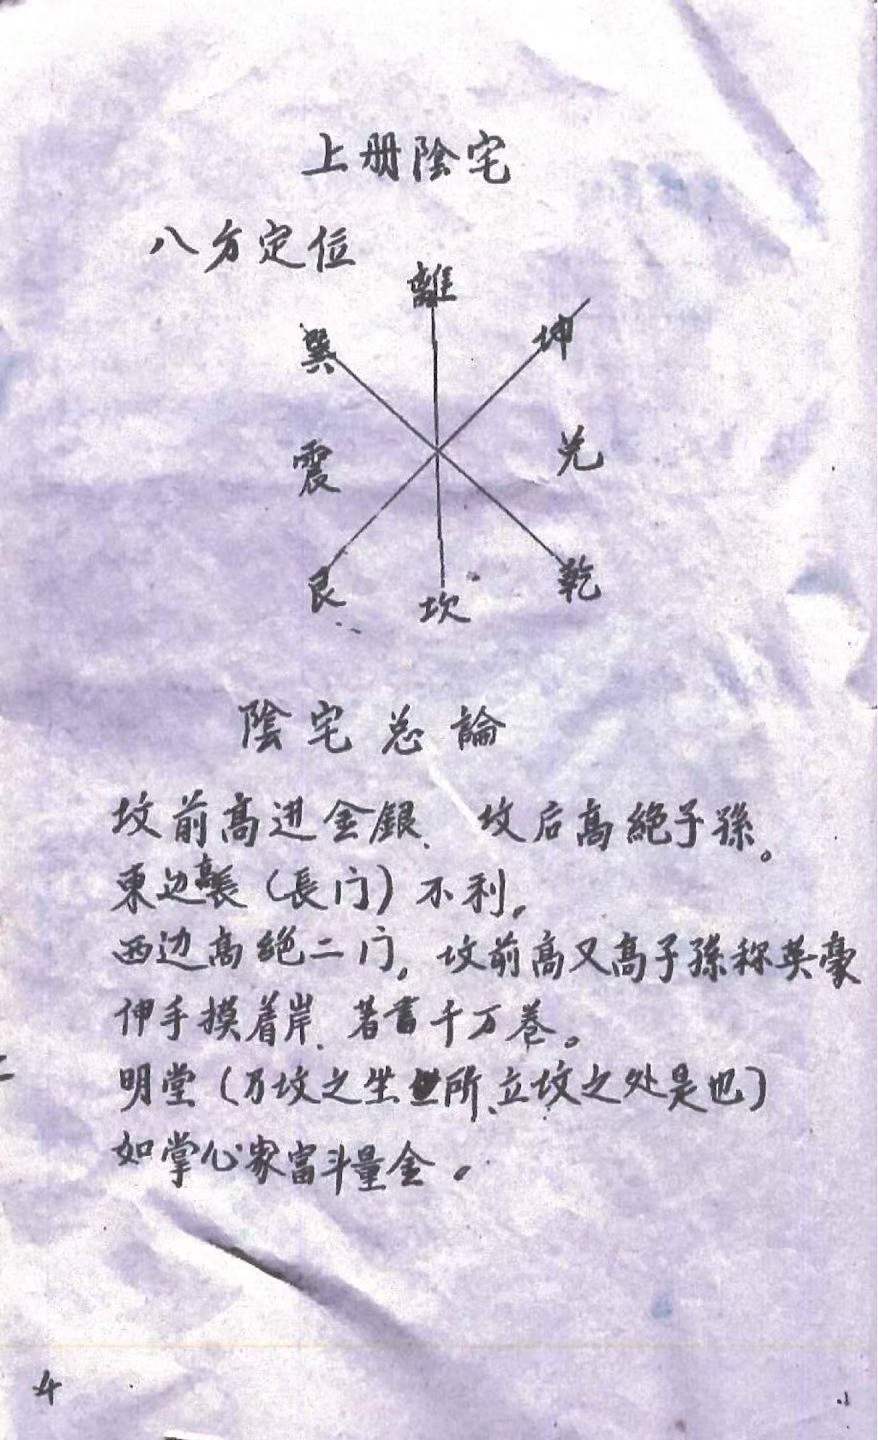 上册陰宅
八方定位
離
巽 坤
震 兑
艮 坎 乾
陰宅总論
坟前高进金銀、坟后高絶子孫。
東边高長(長门)不利,
西边高絶二门,坟前高又高子孫称英豪
伸手摸着岸、著書千万卷。
明堂(乃坟之坐所、立坟之处是也)
如掌心家富斗量金。
4